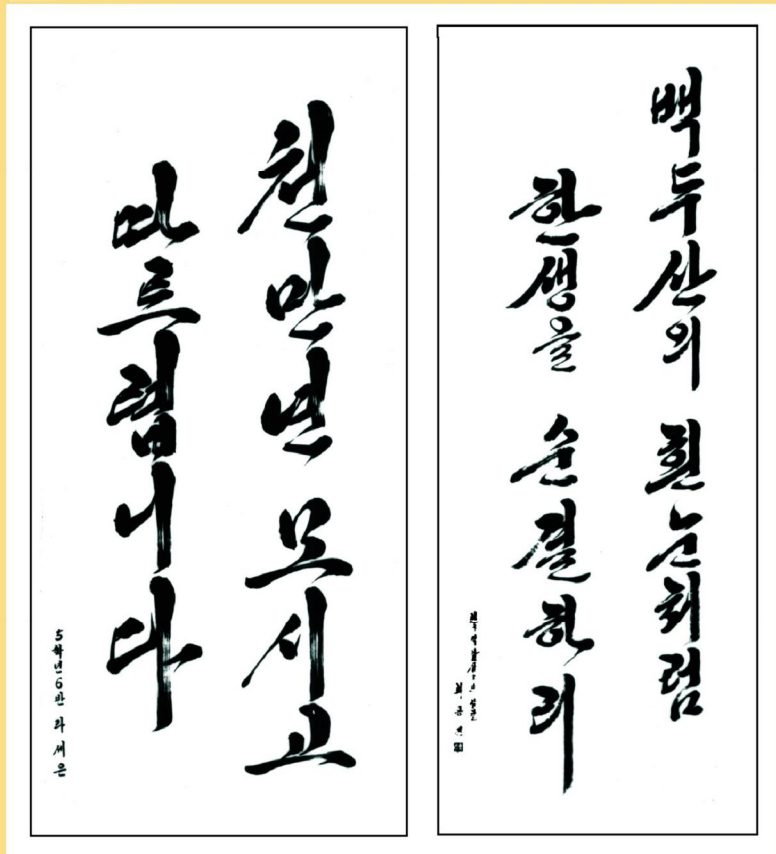 천만년 모시고
따르렵니다
5학년6반 라세은
백두산의 흰눈처럼
한생을 순결하리